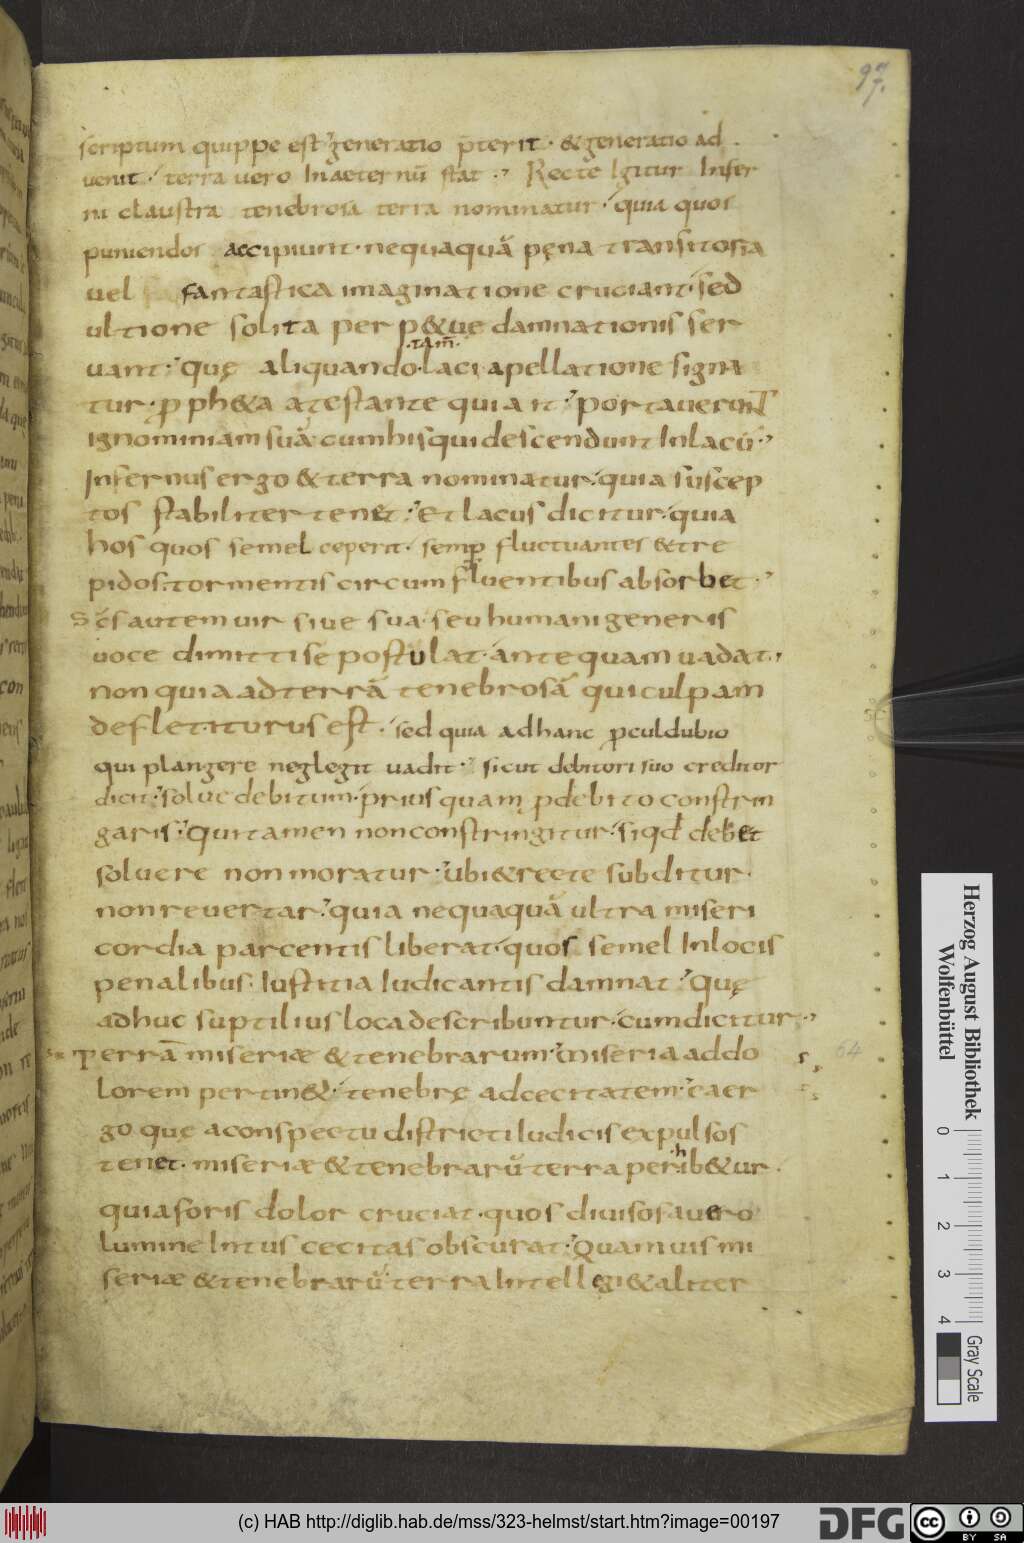 97.
scriptum quippe est; generatio p̄terit · & generatio ad
venit · terra uero In aeternū stat · Recte Igitur Infer
ni claustra tenebrosa terra nominatur · quia quos
puniendos accipiunt · nequaquā pęna transitoria
uel fantastica imaginatione cruciant · sed
ultione solita perp&uę damnationis ser
·tam̄·
uant · quę aliquando laci apellatione signa
tur · ꝓph&a atestante qui ait · portauerunt
ignominiam suā cum his qui descendunt In lacū ·
Infernus ergo & terra nominatur · quia suscep
tos stabiliter tenet · Et lacus dicitur · quia
hos quos semel ceperit · semꝑ fluctuantes & tre
pidos · tormentis circumfluentibus absorbet ·
Scs̄ autem uir siue sua · seu humani generis
uoce dimitti se postulat · antequam uadat ·
non quia ad terrā tenebrosā qui culpam
defletiturus est · sed quia ad hanc ꝓculdubio
qui plangere neglegit uadit · sicut debitori suo creditor
dicit · solue debitum · prius quam ꝓ debito constrin
garis · Qui tamen non constringitur · si qd̄ debet
soluere non moratur · ubi & recte subditur ·
non reuertar · quia nequaquā ultra miseri
cordia parcentis liberat · quos semel In locis
penalibus · Iustitia Iudicantis damnat · Quę
adhuc suptilius loca describuntur · cum dicitur ·
Terrā miseriæ & tenebrarum · Miseria ad do
64
lorem pertin& · tenebrę ad cecitatem · ea er
go quę a conspectu districti Iudicis expulsos
h
tenet · miseriæ & tenebrarū terra perib&ur ·
quia foris dolor cruciat · quos diuisos a uero
lumine Intus cecitas obscurat · Quamuis mi
seriæ & tenebrarū terra Intellęgi & aliter
Herzog August Bibliothek
Wolfenbüttel
0 1 2 3 4
Gray Scale
(c) HAB http://diglib.hab.de/mss/323-helmst/start.htm?image=00197
DFG
cc BY SA